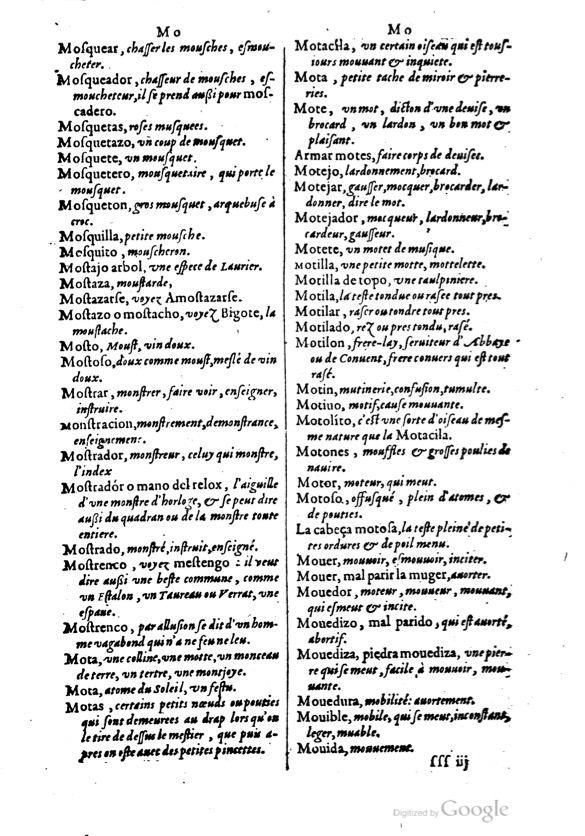 Mo
Mosquear, chaſſer les mouſches, eſmou-
cheter.
Mosqueador, chaſſeur de mouſches, eſ-
moucheteur, il ſe prend außi pour moſ-
cadero.
Mosquetas, roſes muſquees.
Mosquetazo, vn coup de mouſquet.
Mosquete, vn mouſquet.
Mosquetero, mouſquetaire, qui porte le
mouſquet.
Mosqueton, gros mouſquet, arquebuſe à
croc.
Mosquilla, petite mouſche.
Mosquito, mouſcheron.
Moſtajo arbol, vne eſpece de Laurier.
Moſtaza, mouſtarde,
Moſtazarſe, voyez Amoſtazarſe.
Moſtazo o moſtacho, voyez Bigote, la
mouſtache.
Moſto, Mouſt, vin doux.
Moſtoſo, doux comme mouſt, meſlé de vin
doux.
Moſtrar, monſtrer, faire voir, enſeigner,
inſtruire.
Monſtracion, monſtrement, demonſtrance,
enſeignement.
Moſtrador, monſtreur, celuy qui monſtre,
l'index
Moſtradór o mano del relox, l'aiguille
d'vne monſtre d'horloge, & ſe peut dire
außi du quadran ou de la monſtre toute
entiere.
Moſtrado, monſtré, inſtruit, enſeigné.
Moſtrenco, voyez meſtengo : il veut
dire außi vne beſte commune, comme
vn Eſtalon, vn Taureau ou Verrat, vne
eſpaue.
Moſtrenco, par alluſion ſe dit d'vn hom-
me vagabond qui n'a ne feu ne leu.
Mota, vne colline, vne motte, vn monceau
de terre, vn tertre, vne montjoye.
Mota, atome du Soleil, vn feſtu.
Motas, certains petits nœuds ou pouties
qui ſont demeurees au drap lors qu'on
le tire de deſſus le meſtier, que puis a-
pres on oſte auec des petites pincettes.
Mo
Motacila, vn certain oiſeau qui eſt touſ-
iours mouuant & inquiete.
Mota, petite tache de miroir & pierre-
ries.
Mote, vn mot, dicton d'vne deuiſe, vn
brocard, vn lardon, vn bon mot &
plaiſant.
Armar motes, faire corps de deuiſes.
Motejo, lardonnement, brocard.
Motejar, gauſſer, mocquer, brocarder, lar-
donner, dire le mot.
Motejador, mocqueur, lardonneur, bro-
cardeur, gauſſeur.
Motete, vn motet de muſique.
Motilla, vne petite motte, mottelette.
Motilla de topo, vne taulpiniere.
Motila, la teſte tondue ou raſee tout pres.
Motilar, raſer ou tondre tout pres.
Motilado, rez ou pres tondu, raſé.
Motilon, frere-lay, ſeruiteur d'Abbaye
ou de Conuent, frere conuers qui eſt tout
raſé.
Motin, mutinerie, confuſion, tumulte.
Motiuo, motif, cauſe mouuante.
Motolito, c'eſt vne ſorte d'oiſeau de meſ-
me nature que la Motacila.
Motones, mouffles & groſſes poulies de
nauire.
Motor, moteur, qui meut.
Motoſo, offuſqué, plein d'atomes, &
de pouties.
La cabeça motoſa, la teſte pleine de peti-
tes ordures & de poil menu.
Mouer, mouuoir, eſmouuoir, inciter.
Mouer, mal parir la muger, auorter.
Mouedor, moteur, mouueur, mouuant,
qui eſmeut & incite.
Mouedizo, mal parido, qui eſt auorté,
abortif.
Mouediza, piedra mouediza, vne pier-
re qui ſe meut, facile à mouuoir, mou-
uante.
Mouedura, mobilité: auortement.
Mouible, mobile, qui ſe meut, inconſtant,
leger, muable.
Mouida, mouuement.
ſſſ iij
Digitized by Google